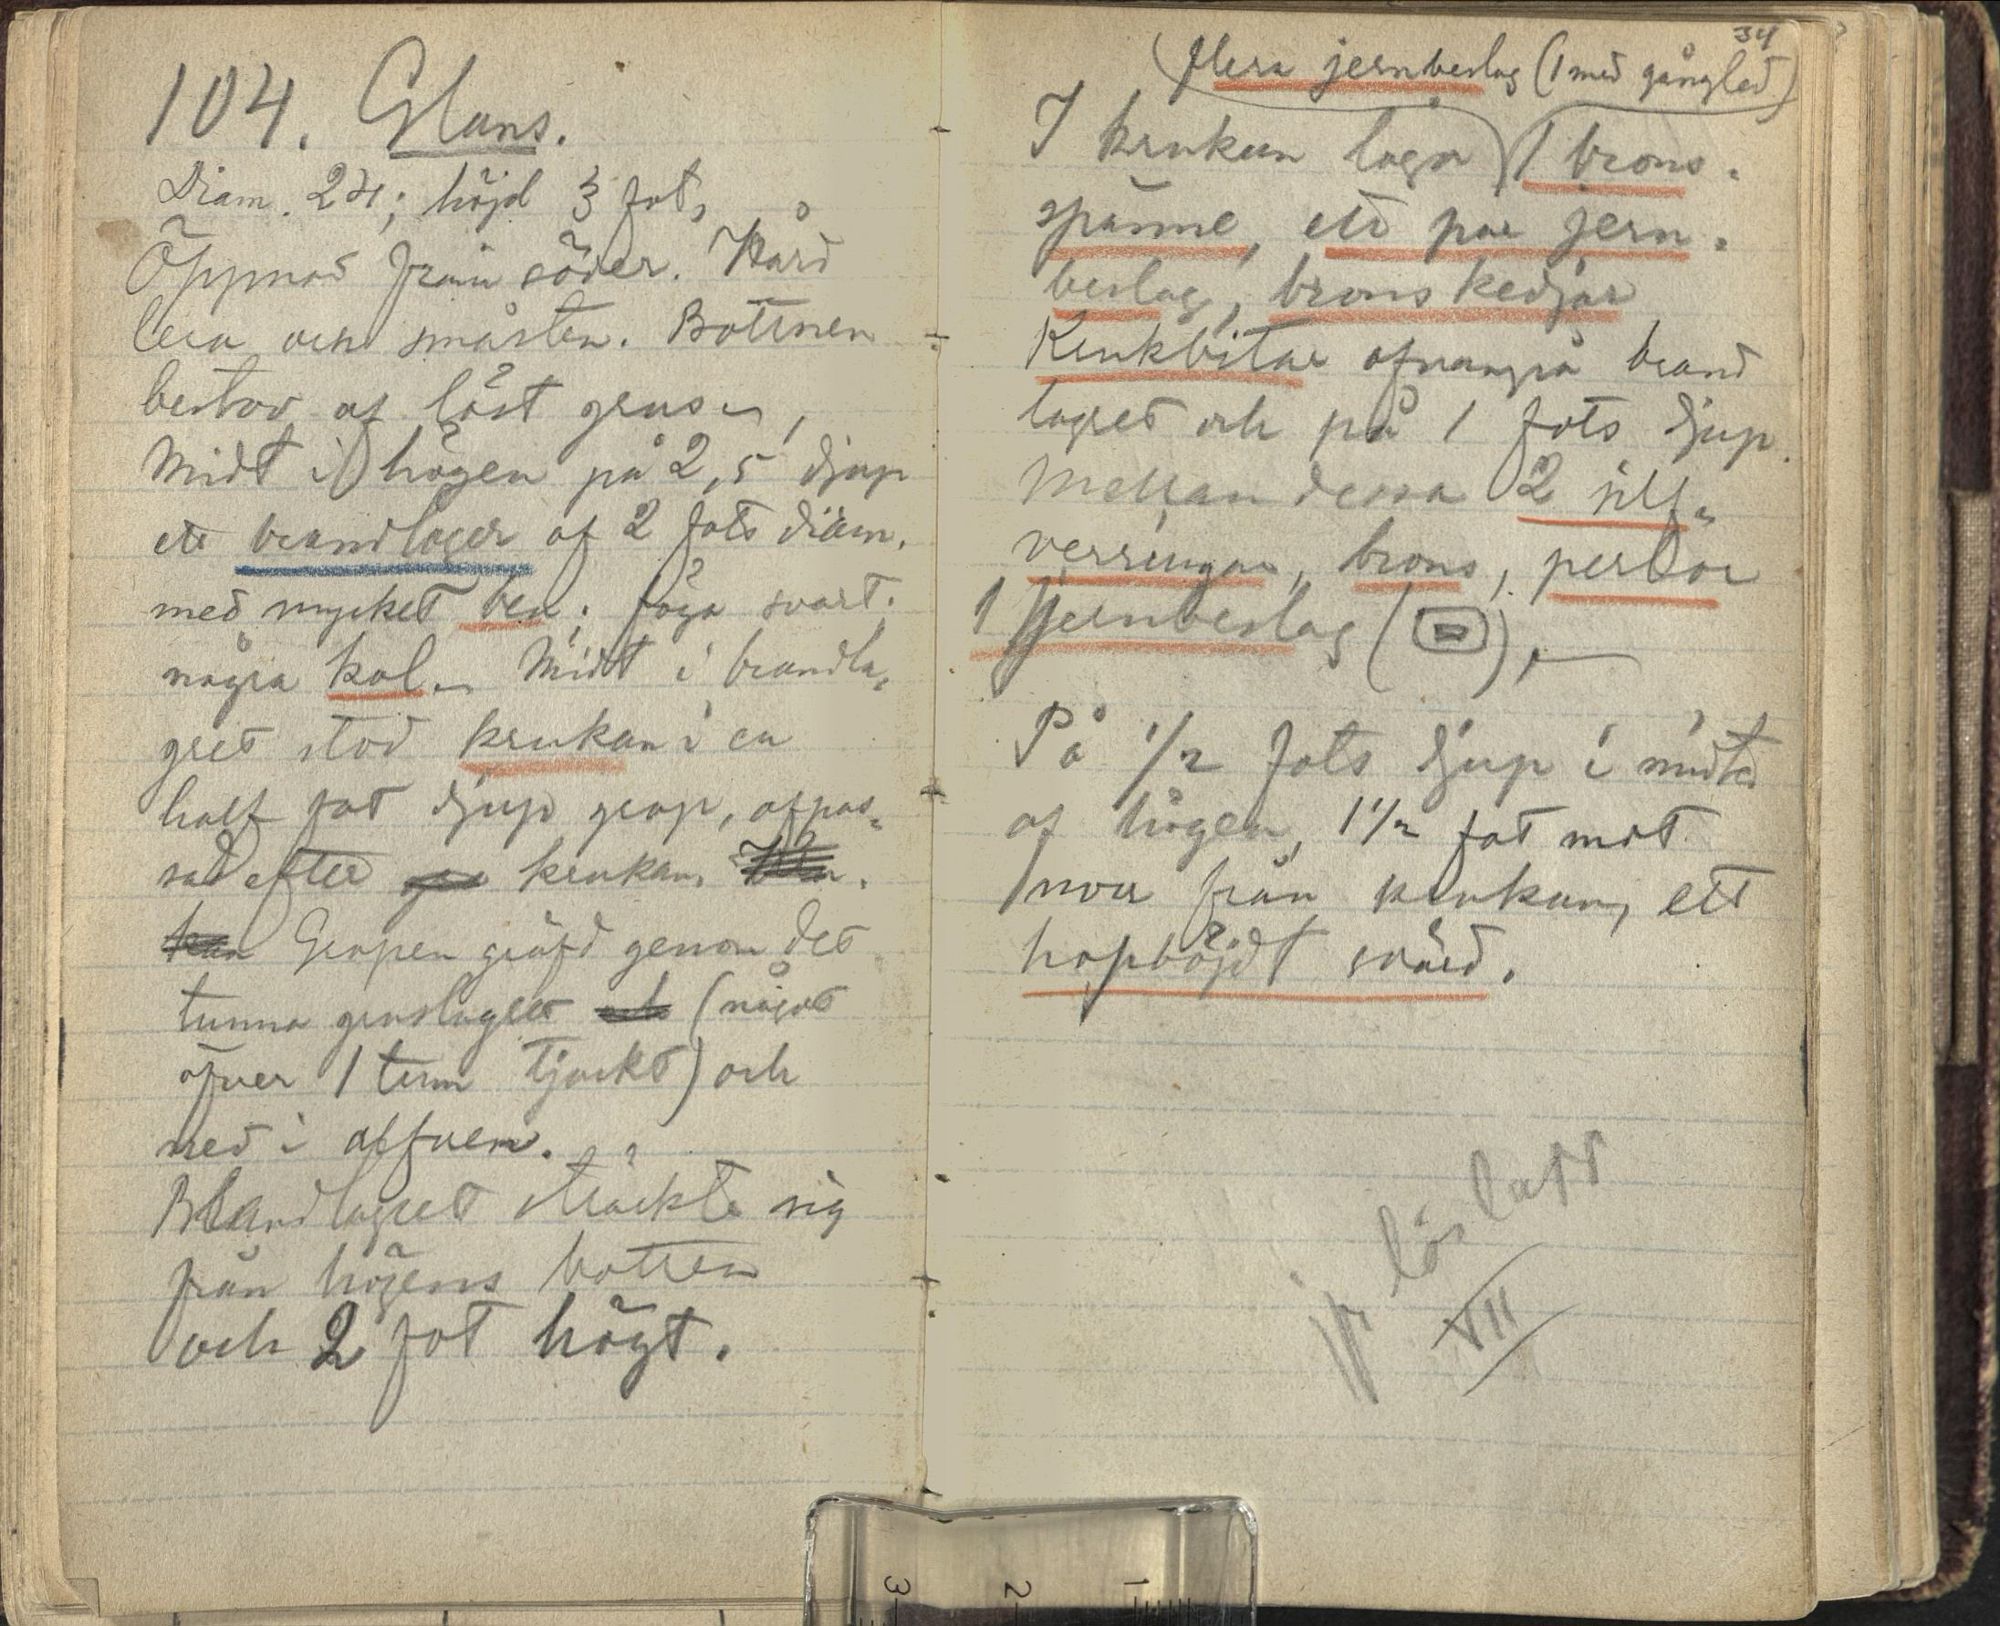 104. Glans.
Diam. 24; höjd 3 fot,
Öppnad från söder. Hård
lera och småsten. Bottnen
bestod af löst grus.
Midt i högen på 2,5 djup
ett brandlager af 2 fots diam.
med mycket ben; föga svart.
några kol. Midt i brandla-
gret stod krukan i en
half fot djup grop, afpas-
sad efter krukan.
Gropen gräfd genom det
tunna gruslagret och (något
öfver 1 tum tjockt) och
ned i alfven.
Brandlagret sträckte sig
från högens botten
och 2 fot högt.
34
flera jernbeslag (1 med gångled)
I krukan lågo 1 brons-
spänne, ett par jern-
beslag, bronskedjor
Krukbitar ofvanpå brand
lagret och på 1 fots djup.
Mellan dessa 2 silf-
verringar, brons, perlor
1 jernbeslag ( ),
På 1/2 fots djup i midten
af högen, 1 1/2 fot mot
norr från krukan, ett
hopböjdt svärd.
jfr löst
VII